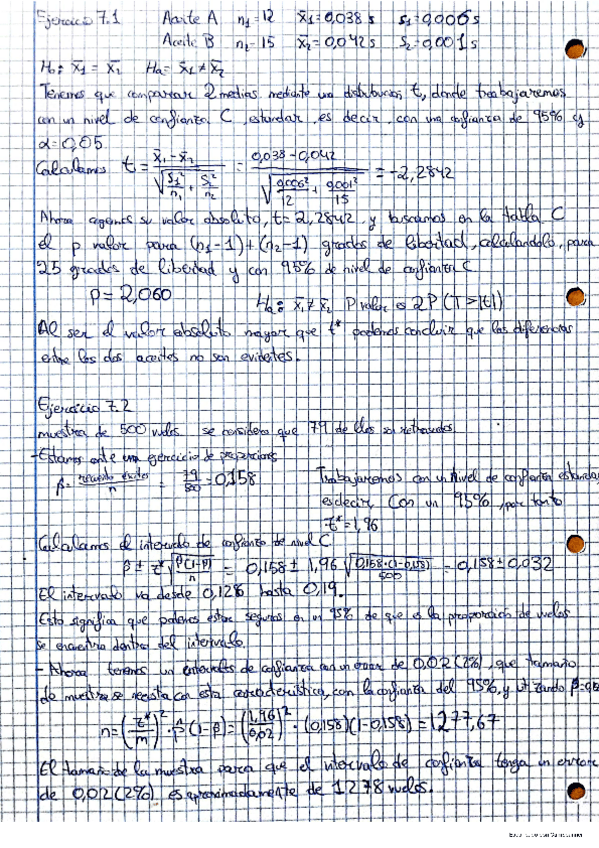 Ejercicio 7.1 Aceite A n₁=12 x̄₁=0,038 s s₁=0,006 s
Aceite B n₂=15 x̄₂=0,042 s s₂=0,001 s
H₀: x̄₁ = x̄₂ Ha= x̄₁ ≠ x̄₂
Tenemos que comparar 2 medias mediante una distribución t, donde trabajaremos
con un nivel de confianza C, estandar, es decir, con una confianza de 95% y
α=0,05
Calculamos t = (x̄₁-x̄₂)/√(s₁²/n₁ + s₂²/n₂) = (0,038-0,042)/√(0,006²/12 + 0,001²/15) = -2,2842
Ahora cogemos su valor absoluto, t=2,2842, y buscamos en la tabla C
el p valor para (n₁-1)+(n₂-1) grados de libertad, calculandolo, para
25 grados de libertad y con 95% de nivel de confianza C
P=2,060 Ha: x̄₁≠x̄₂ P valor es 2P(T>|t|)
Al ser el valor absoluto mayor que t* podemos concluir que las diferencias
entre los dos aceites no son evidentes.
Ejercicio 7.2
muestra de 500 vuelos se considera que 79 de ellos son retrasados
-Estamos ante un ejercicio de proporciones
p̂ = recuento éxitos/n = 79/500 = 0,158 Trabajaremos con un nivel de confianza estandar
es decir, con un 95%, por tanto
z*=1,96
Calculamos el intervalo de confianza de nivel C
p̂ ± z*√(p̂(1-p̂)/n) = 0,158 ± 1,96 √(0,158·(1-0,158)/500) = 0,158 ± 0,032
El intervalo va desde 0,126 hasta 0,19.
Esto significa que podemos estar seguros en un 95% de que es la proporción de vuelos
se encuentra dentro del intervalo.
- Ahora tenemos un intervalos de confianza con un error de 0,02 (2%), que tamaño
de muestra se necesita con esta característica, con la confianza del 95%, y utilizando p̂=
n=(z*/m)²·p̂(1-p̂)=(1,96/0,02)²·(0,158)(1-0,158)=1277,67
El tamaño de la muestra para que el intervalo de confianza tenga un error
de 0,02 (2%) es aproximadamente de 1278 vuelos.